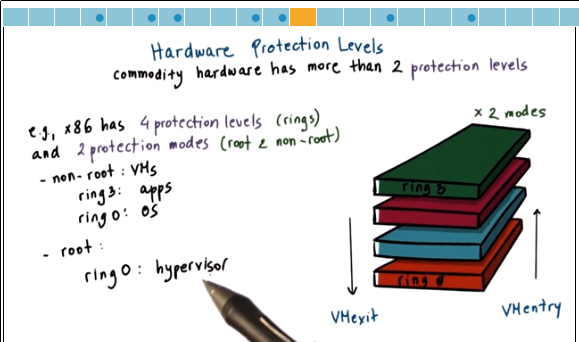 Hardware Protection Levels
commodity hardware has more than 2 protection levels
e.g., x86 has 4 protection levels (rings)
and 2 protection modes (root & non-root)
- non-root : VMs
ring 3: apps
ring 0: OS
- root :
ring 0 : hypervisor
x 2 modes
ring 3
ring 0
VMexit
VMentry